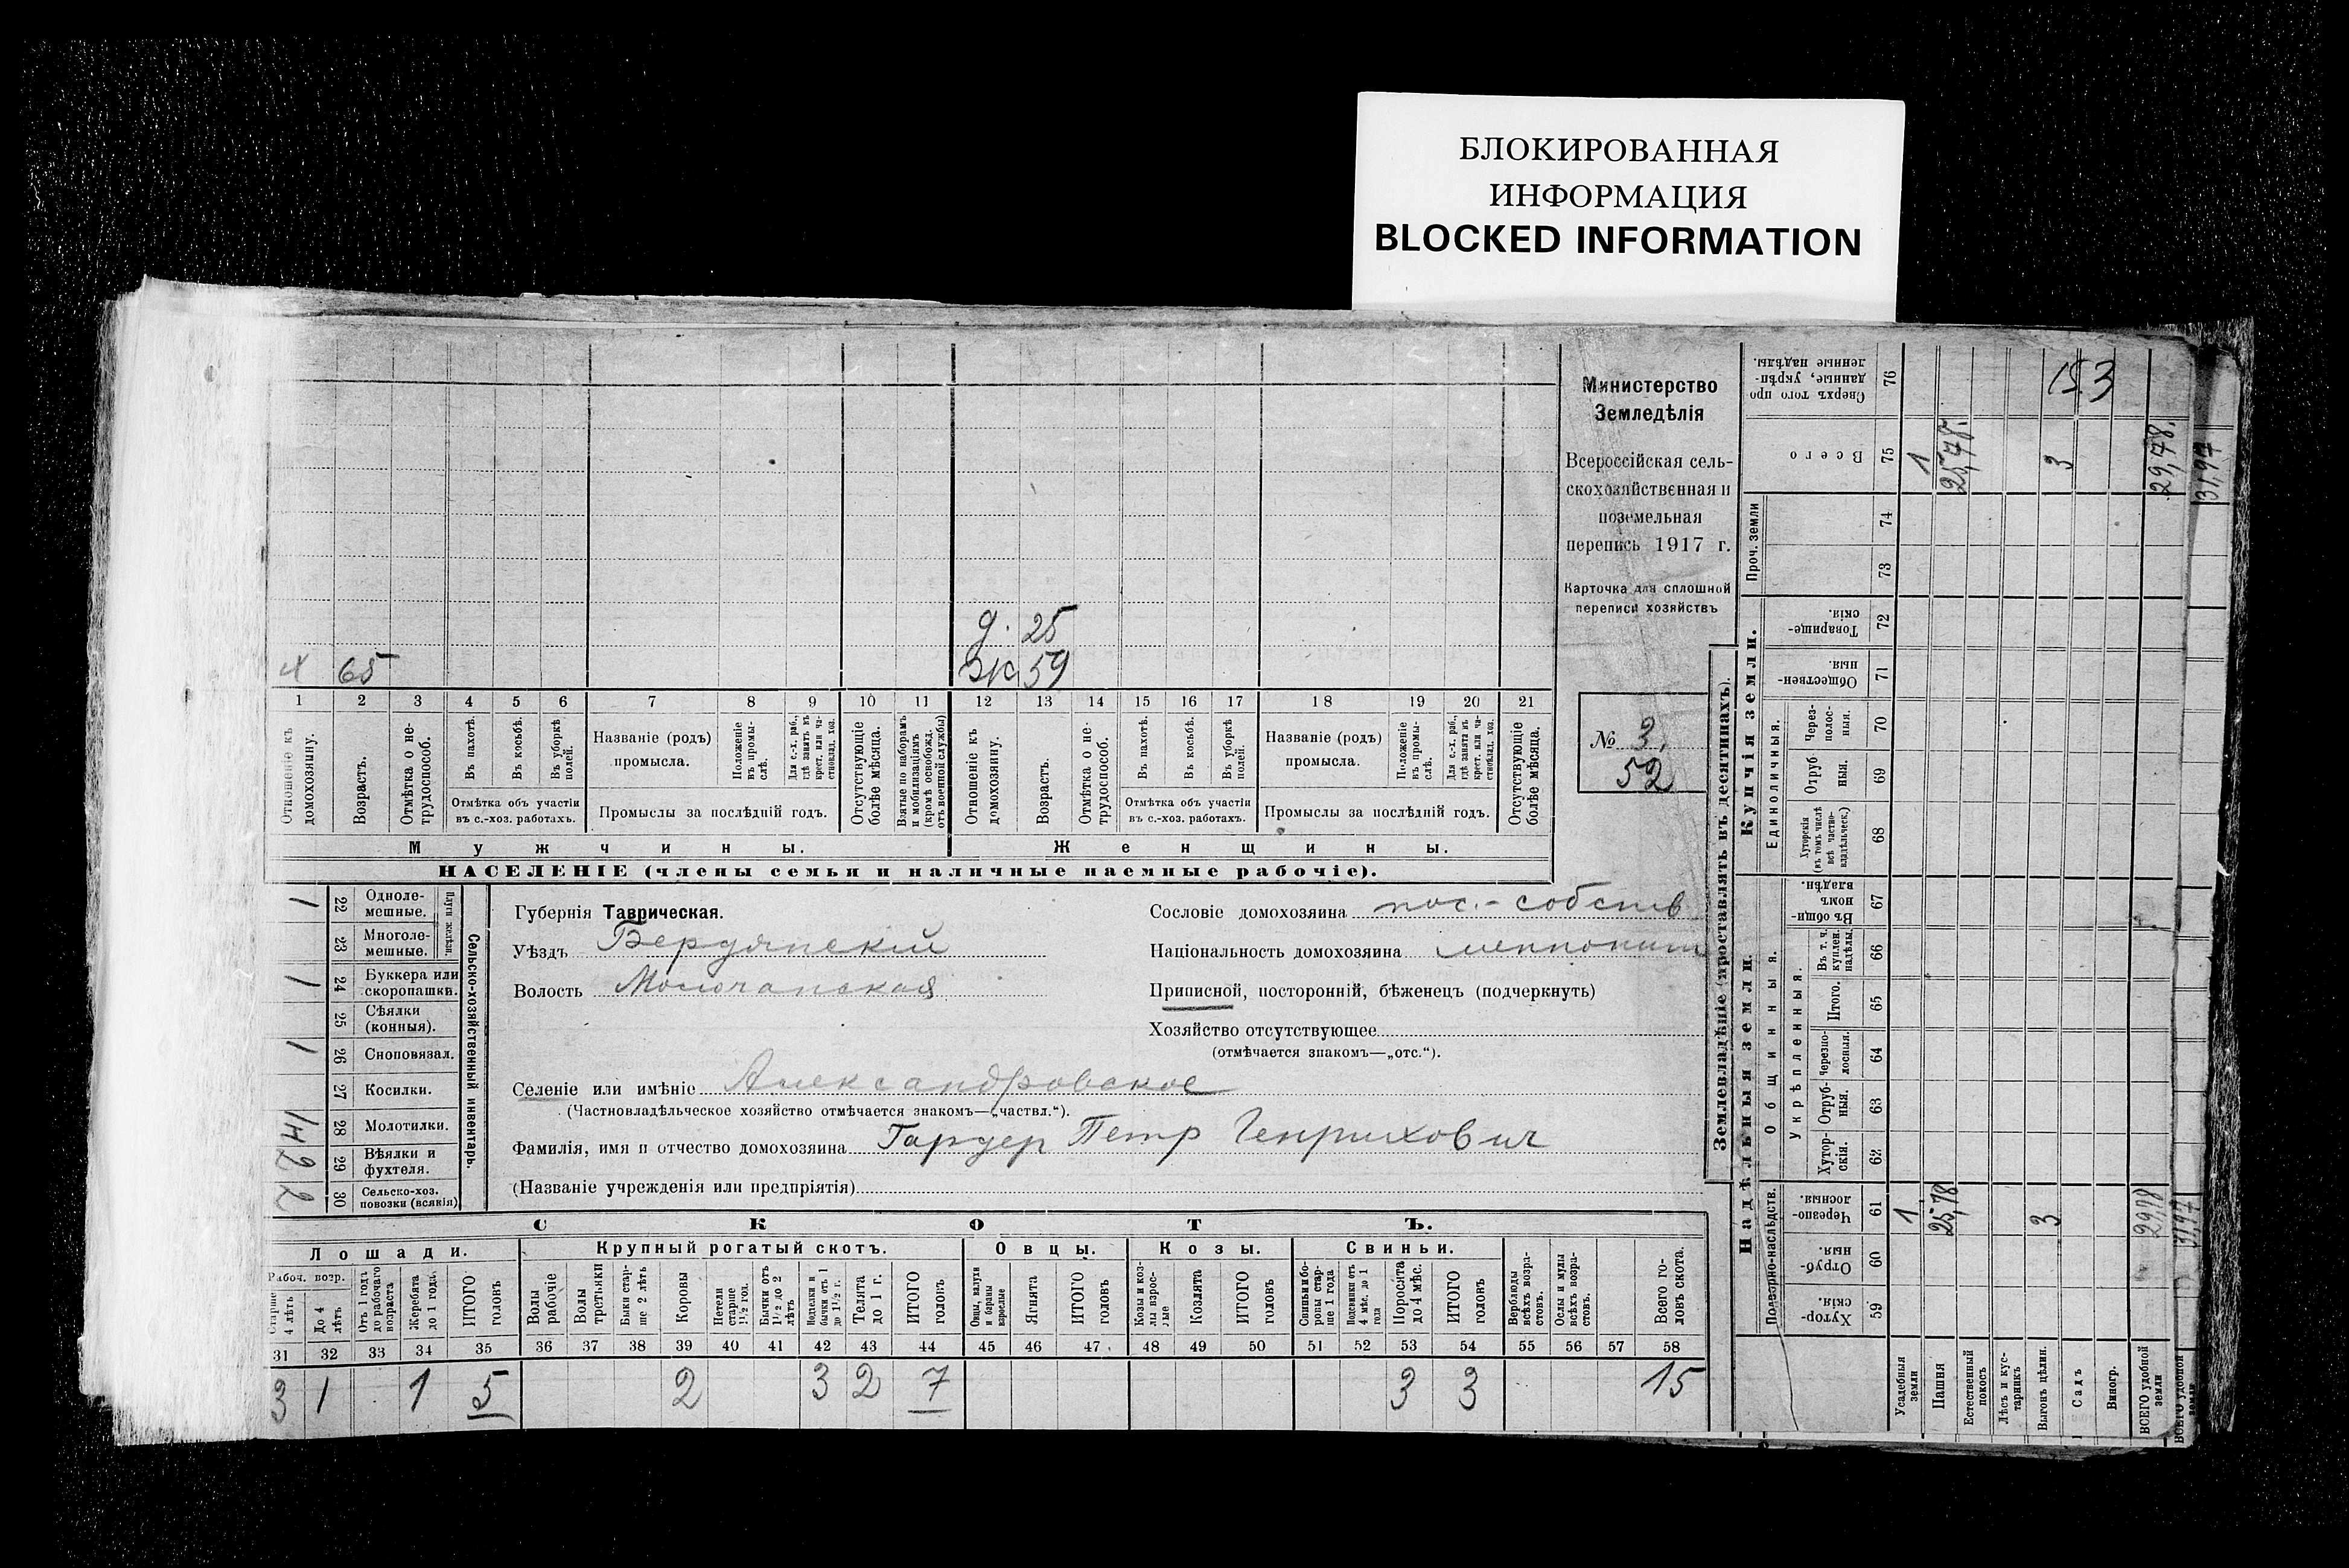 БЛОКИРОВАННАЯ
ИНФОРМАЦИЯ
BLOCKED INFORMATION
Министерство
Земледѣлія
Всероссійская сель-
скохозяйственная и
поземельная
перепись 1917 г.
Карточка для сплошной
переписи хозяйствъ
№ 3.
52
д. 25
х 65 ж 59
1 2 3 4 5 6 7 8 9 10 11 12 13 14 15 16 17 18 19 20 21
Отношеніе къ домохозяину.
Возрастъ.
Отмѣтка о не-трудоспособ.
Въ пахотѣ.
Въ косьбѣ.
Въ уборкѣ полей.
Отмѣтка объ участіи
въ с.-хоз. работахъ.
Названіе (родъ)
промысла.
Положеніе въ промы-слѣ.
Для с.-х. раб., гдѣ занятъ въ крест. или ча-стновлад. хоз.
Промыслы за послѣдній годъ.
Отсутствующіе болѣе мѣсяца.
Взятые по наборамъ и мобилизаціямъ (кромѣ освобожд. отъ военной службы)
Отношеніе къ домохозяину.
Возрастъ.
Отмѣтка о не-трудоспособ.
Въ пахотѣ.
Въ косьбѣ.
Въ уборкѣ полей.
Отмѣтка объ участіи
въ с.-хоз. работахъ.
Названіе (родъ)
промысла.
Положеніе въ промы-слѣ.
Для с.-х. раб., гдѣ занята въ крест. или ча-стновлад. хоз.
Промыслы за послѣдній годъ.
Отсутствующіе болѣе мѣсяца.
Мужчины. Женщины.
НАСЕЛЕНІЕ (члены семьи и наличные наемные рабочіе).
Сельско-хозяйственный инвентарь.
Плуги желѣзн.
1 22 Одноле-мешные.
23 Многоле-мешные.
1 24 Буккера или скоропашки.
25 Сѣялки (конныя).
1 26 Сноповязал.
27 Косилки.
1/4 28 Молотилки.
2 29 Вѣялки и фухтеля.
2 30 Сельско-хоз. повозки (всякія)
Губернія Таврическая.
Уѣздъ Бердянскій
Волость Молочанская
Сословіе домохозяина пос.-собств
Національность домохозяина меннонит
Приписной, посторонній, бѣженецъ (подчеркнуть)
Хозяйство отсутствующее
(отмѣчается знакомъ—„отс.“).
Селеніе или имѣніе Александровское
(Частновладѣльческое хозяйство отмѣчается знакомъ—„частвл.“).
Фамилія, имя и отчество домохозяина Гардер Петр Генрихович
(Названіе учрежденія или предпріятія)
СКОТЪ.
Лошади. Крупный рогатый скотъ. Овцы. Козы. Свиньи.
Рабоч. возр.
Старше 4 лѣтъ
До 4 лѣтъ
Отъ 1 года до рабочаго возраста
Жеребята до 1 года.
ИТОГО головъ
Волы рабочіе
Волы третьяки
Быки стар-ше 2 лѣтъ
Коровы
Нетели старше 1½ год.
Бычки отъ 1½ до 2 лѣтъ
Нетелки и бычки отъ 1 до 1½ г.
Телята до 1 г.
ИТОГО головъ
Овцы, валухи и бараны взрослые
Ягнята
ИТОГО головъ
Козы и коз-лы взрос-лые
Козлята
ИТОГО головъ
Свиньи и бо-ровы стар-ше 1 года
Подсвинки отъ 4 мѣс. до 1 года
Поросята до 4 мѣс.
ИТОГО головъ
Верблюды всѣхъ возра-стовъ.
Ослы и мулы всѣхъ возра-стовъ.
Всего го-ловъ скота.
31 32 33 34 35 36 37 38 39 40 41 42 43 44 45 46 47 48 49 50 51 52 53 54 55 56 57 58
3 1 1 5 2 3 2 7 3 3 15
Землевладѣніе (проставлять въ десятинахъ).
Надѣльныя земли. Купчія земли.
Проч. земли
Подворно-наслѣдств.
Общинныя.
Укрѣпленныя.
Единоличныя.
Хутор-скія. 59
Отруб-ныя. 60
Черезпо-лосныя. 61
Хутор-скія. 62
Отруб-ныя. 63
Черезпо-лосныя. 64
Итого. 65
Въ т. ч. куплен. надѣлы. 66
Въ общи-номъ владѣн. 67
Хуторскія (въ томъ числѣ всѣ частно-владѣльческ.) 68
Отруб ныя. 69
Через-полос-ныя. 70
Обществен-ныя. 71
Товарище-скія. 72
73
74
Всего 75
Сверхъ того про данные, укрѣп-ленные надѣлы. 76
Усадебныя земли 1 1
Пашня 25,78 25,78.
Естественный покосъ
Лѣсъ и кус-тарникъ
Выгонъ цѣлин. 3 3
Садъ
Виногр.
ВСЕГО удобной земли 29,78 29,78.
ВСЕГО удобной земли 31,97 31,97
153